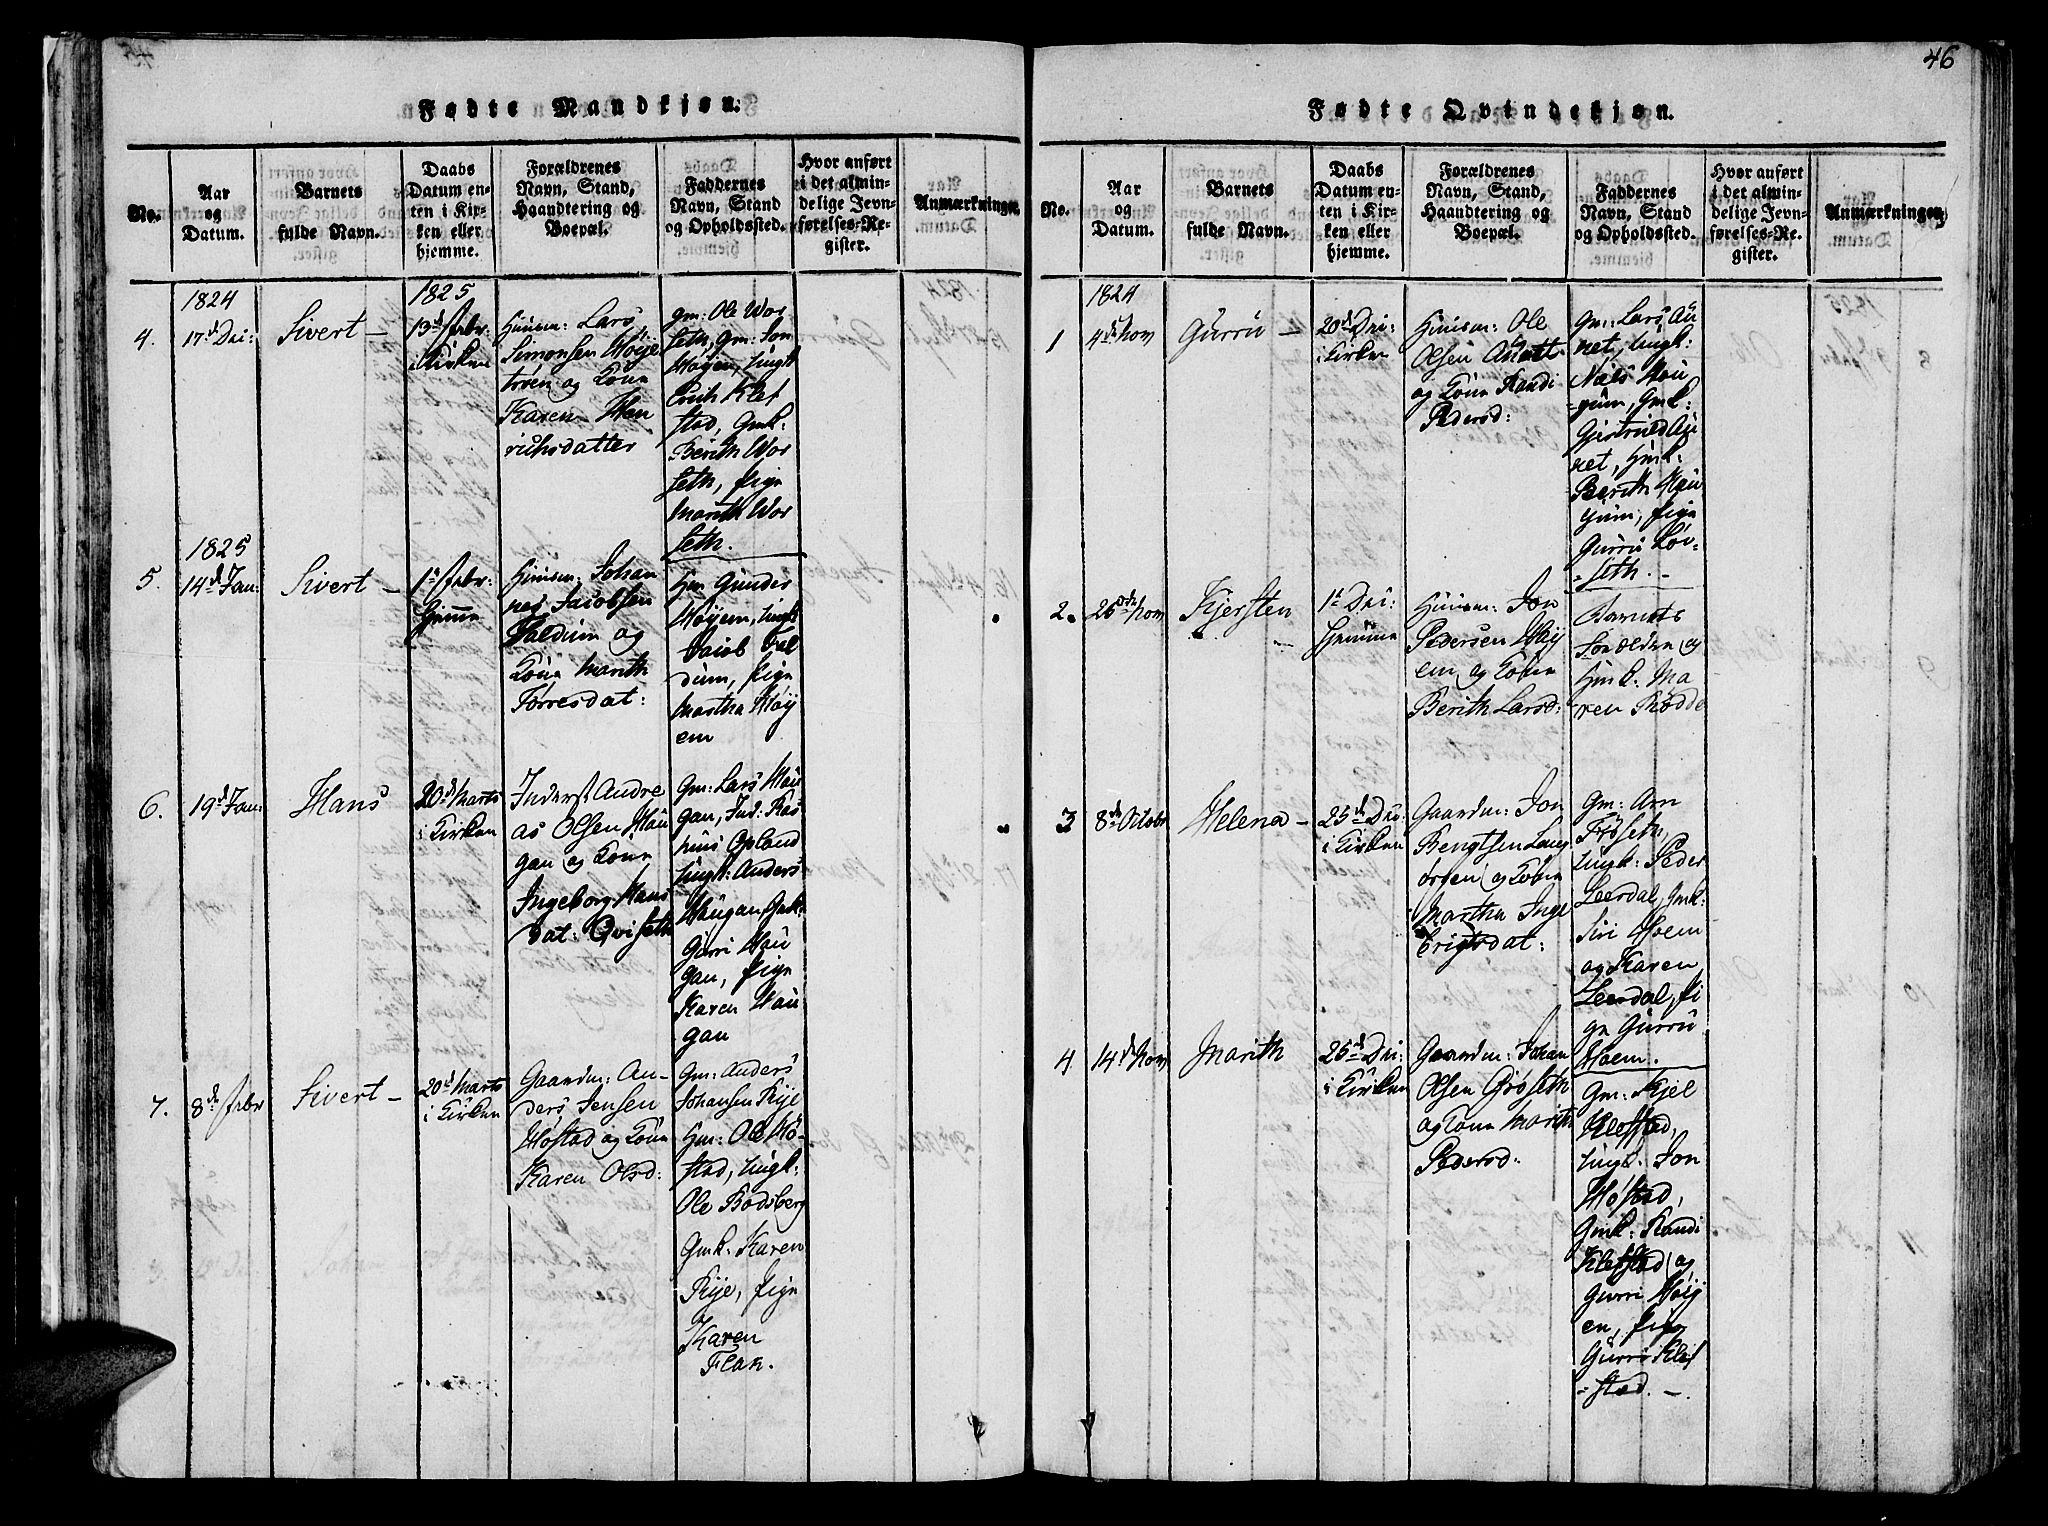 46
Fødte Mandkjøn.
No.
Aar
og
Datum.
Barnets
fulde Navn.
Daabs
Datum en-
ten i Kir-
ken eller
hjemme.
Forældrenes
Navn, Stand,
Haandtering og
Boepæl.
Faddernes
Navn, Stand
og Opholdssted.
Hvor anført
i det almin-
delige Jevn-
førelses-Re-
gister.
Anmærkninger.
4.
1824
17de Dec:
Sivert –
1825
13de Febr:
i Kirken
Huusm: Lars
Simonsen Høije
trøen og Kone
Karen Hen
richsdatter
Gm: Ole Wor
seth, Gm: Jon
Høyen, Ungk
Erich Klef
stad, Gmk:
Berith Wor
seth, Pige
Marith Wor
seth.
5.
1825
14de Jan:
Sivert –
1te Febr:
Hjemme
Huusm: Johan
nes Jacobsen
Valdum og
Kone Marith
Torresdat:
Hm: Gunder
Høyem, Ungk
Jacob Val
dum, Pige
Martha Høÿ
em
6.
19de Jan:
Hans
20de Marts
i Kirken
Inderst Andre
as Olsen Hau
gan og Kone
Ingeborg Hans
dat: Qviseth
Gm: Lars Hau
gan, Ind: Ras
mus Opland
Ungk: Anders
Haugan, Gmk:
Gurri Hau
gan, Pige
Karen Hau
gan
7.
8de Febr
Sivert –
20de Marts
i Kirken
Gaardm: An-
ders Jensen
Høstad og Kone
Karen Olsd:
Gm: Anders
Johansen Rye
Hm: Ole Hø-
stad, Ungk:
Ole Bodsberg
Gmk: Karen
Rye, Pige
Karen
Flak.
Fødte Qvindekjøn.
No.
Aar
og
Datum.
Barnets
fulde Navn.
Daabs
Datum en-
ten i Kir-
ken eller
hjemme.
Forældrenes
Navn, Stand,
Haandtering og
Boepæl.
Faddernes
Navn, Stand
og Opholdssted.
Hvor anført
i det almin-
delige Jevn-
førelses-Re-
gister.
Anmærkninger.
1
1824
4de Nov
Gurru –
20de Dec:
i Kirken
Huusm: Ole
Olsen
og Kone Randi
Pedersd:
Gm: Lars Au
net, Ungk:
Niels Hau
gum, Gmk:
Gjertrud Au
net, Hmk:
Berith Hau
gum, Pige
Gurru Lov-
seth. –
2.
26de Nov
Kjersten
1te Dec:
Hjemme
Huusm: Jon
Pedersen Høÿ
em og Kone
Berith Larsd:
Barnets
Forældre og
Hmk: Ma
ren Rødde
3
8de Octobr
Helena –
25de Dec:
i Kirken
Gaardm: Jon
Bengtsen Lang
ørgen og Kone
Martha Inge
Erigsdat:
Gm: Arn
Frøseth,
Ungk: Peder
Leerdal, Gmk:
Siri Hoem
og Karen
Leerdal, Pi
ge Gurru
Hoem.
4
14de Nov
Marith
26de Dec:
i Kirken
Gaardm: Johan
Olsen Grøseth
og Kone Marith
Pedersd:
Gm: Kjel
Klefstad,
Ungk: Jon
Høstad,
Gmk: Randi
Klefstad og
Gurri Høÿ
en, Pige
Gurri Klef
stad. –